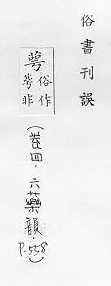 俗書刊誤
萼俗作
非
(卷四．六藥韻．P.558)